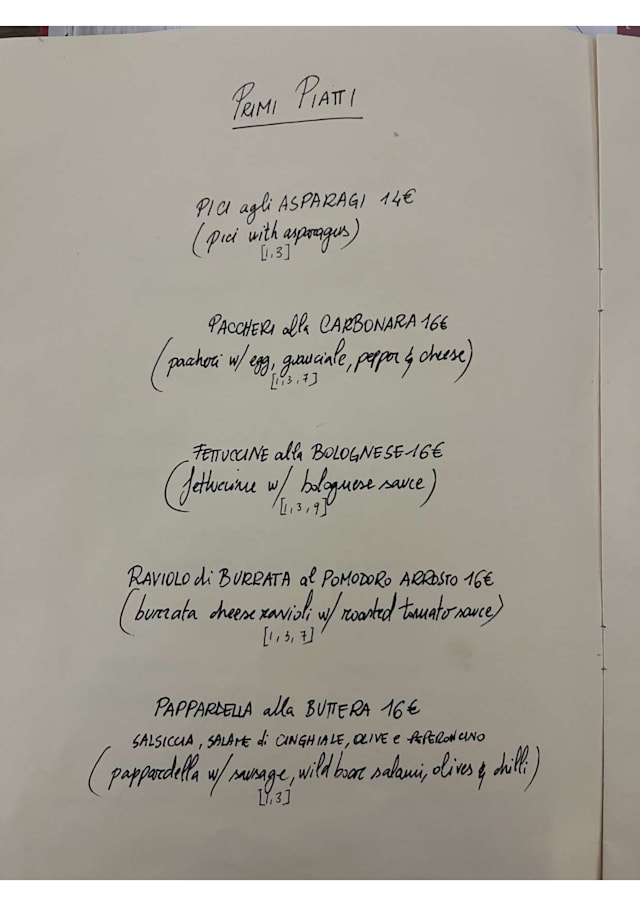 PRIMI PIATTI
PICI agli ASPARAGI 14€
(pici with asparagus)
[1,3]
PACCHERI alla CARBONARA 16€
(paccheri w/ egg, guanciale, pepper & cheese)
[1,3,7]
FETTUCCINE alla BOLOGNESE 16€
(fettuccine w/ bolognese sauce)
[1,3,9]
RAVIOLO di BURRATA al POMODORO ARROSTO 16€
(burrata cheese ravioli w/ roasted tomato sauce)
[1,3,7]
PAPPARDELLA alla BUTTERA 16€
SALSICCIA, SALAME di CINGHIALE, OLIVE e PEPERONCINO
(pappardella w/ sausage, wild boar salami, olives & chilli)
[1,3]